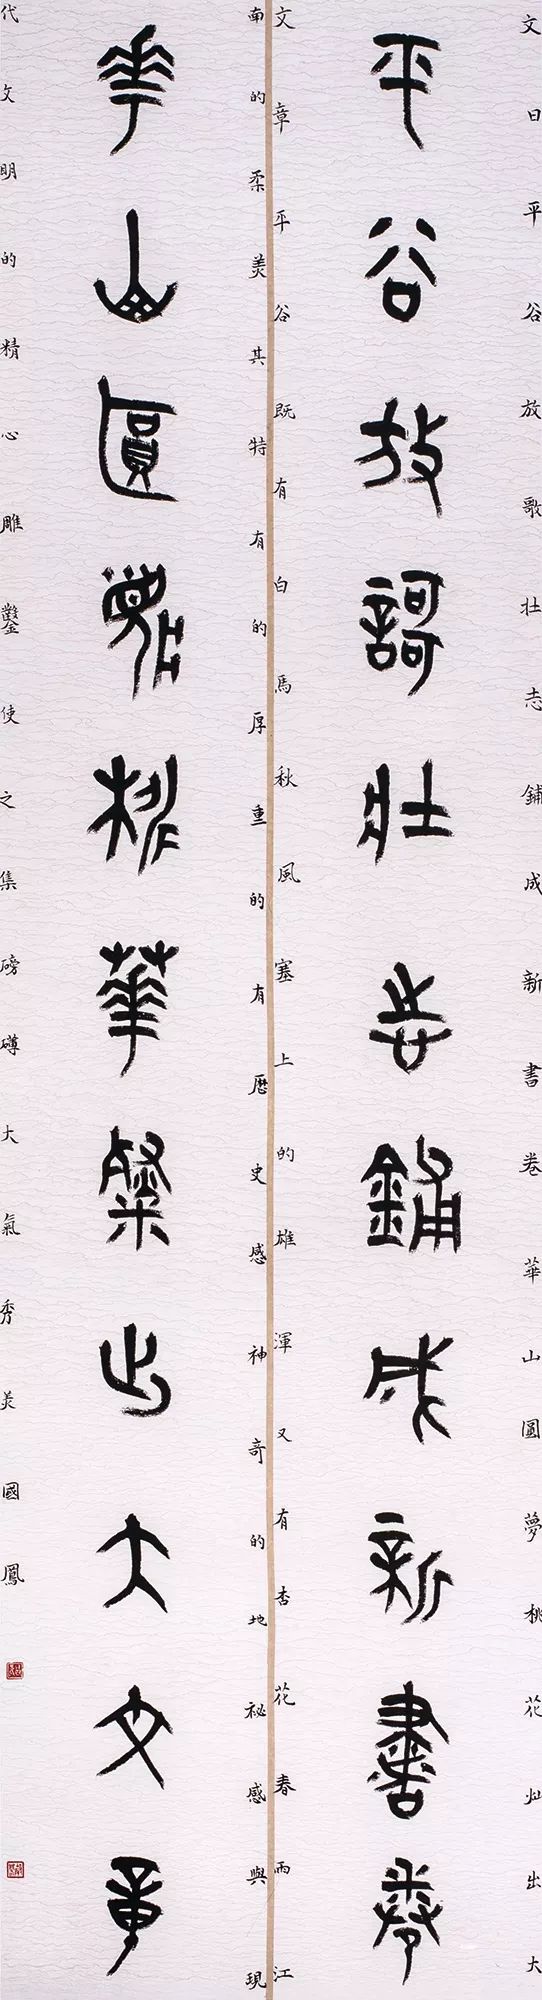 平谷放謌壯志鋪成新書卷
華山圓夢桃華粲出大文章
文曰平谷放歌壮志鋪成新書卷華山圓夢桃花灿出大
文章平谷既有白馬秋風塞上的雄渾又有杏花春雨江
南的柔美其特有的厚重的有歷史感神奇的地祕感與現
代文明的精心雕鑿使之集磅礴大氣秀美國鳳